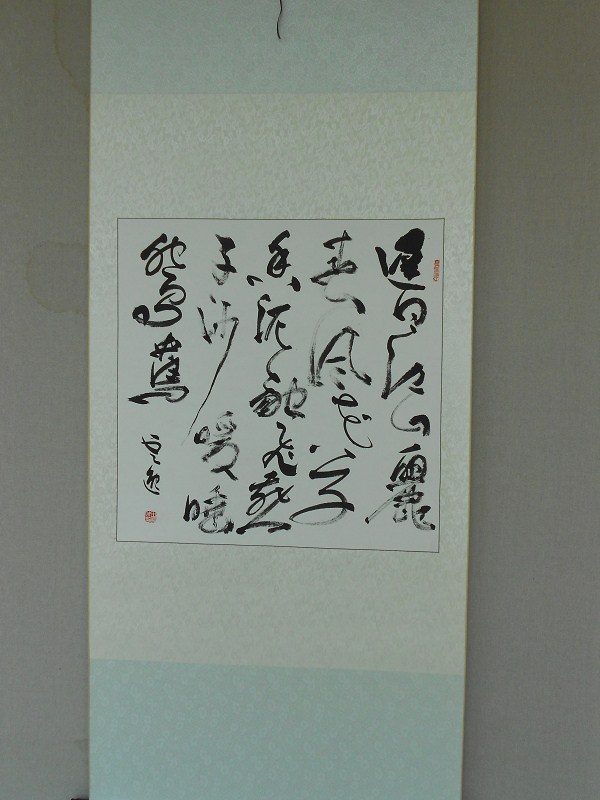 遲日江山麗
春風花草
香泥融飛燕
子沙暖睡
鴛鴦